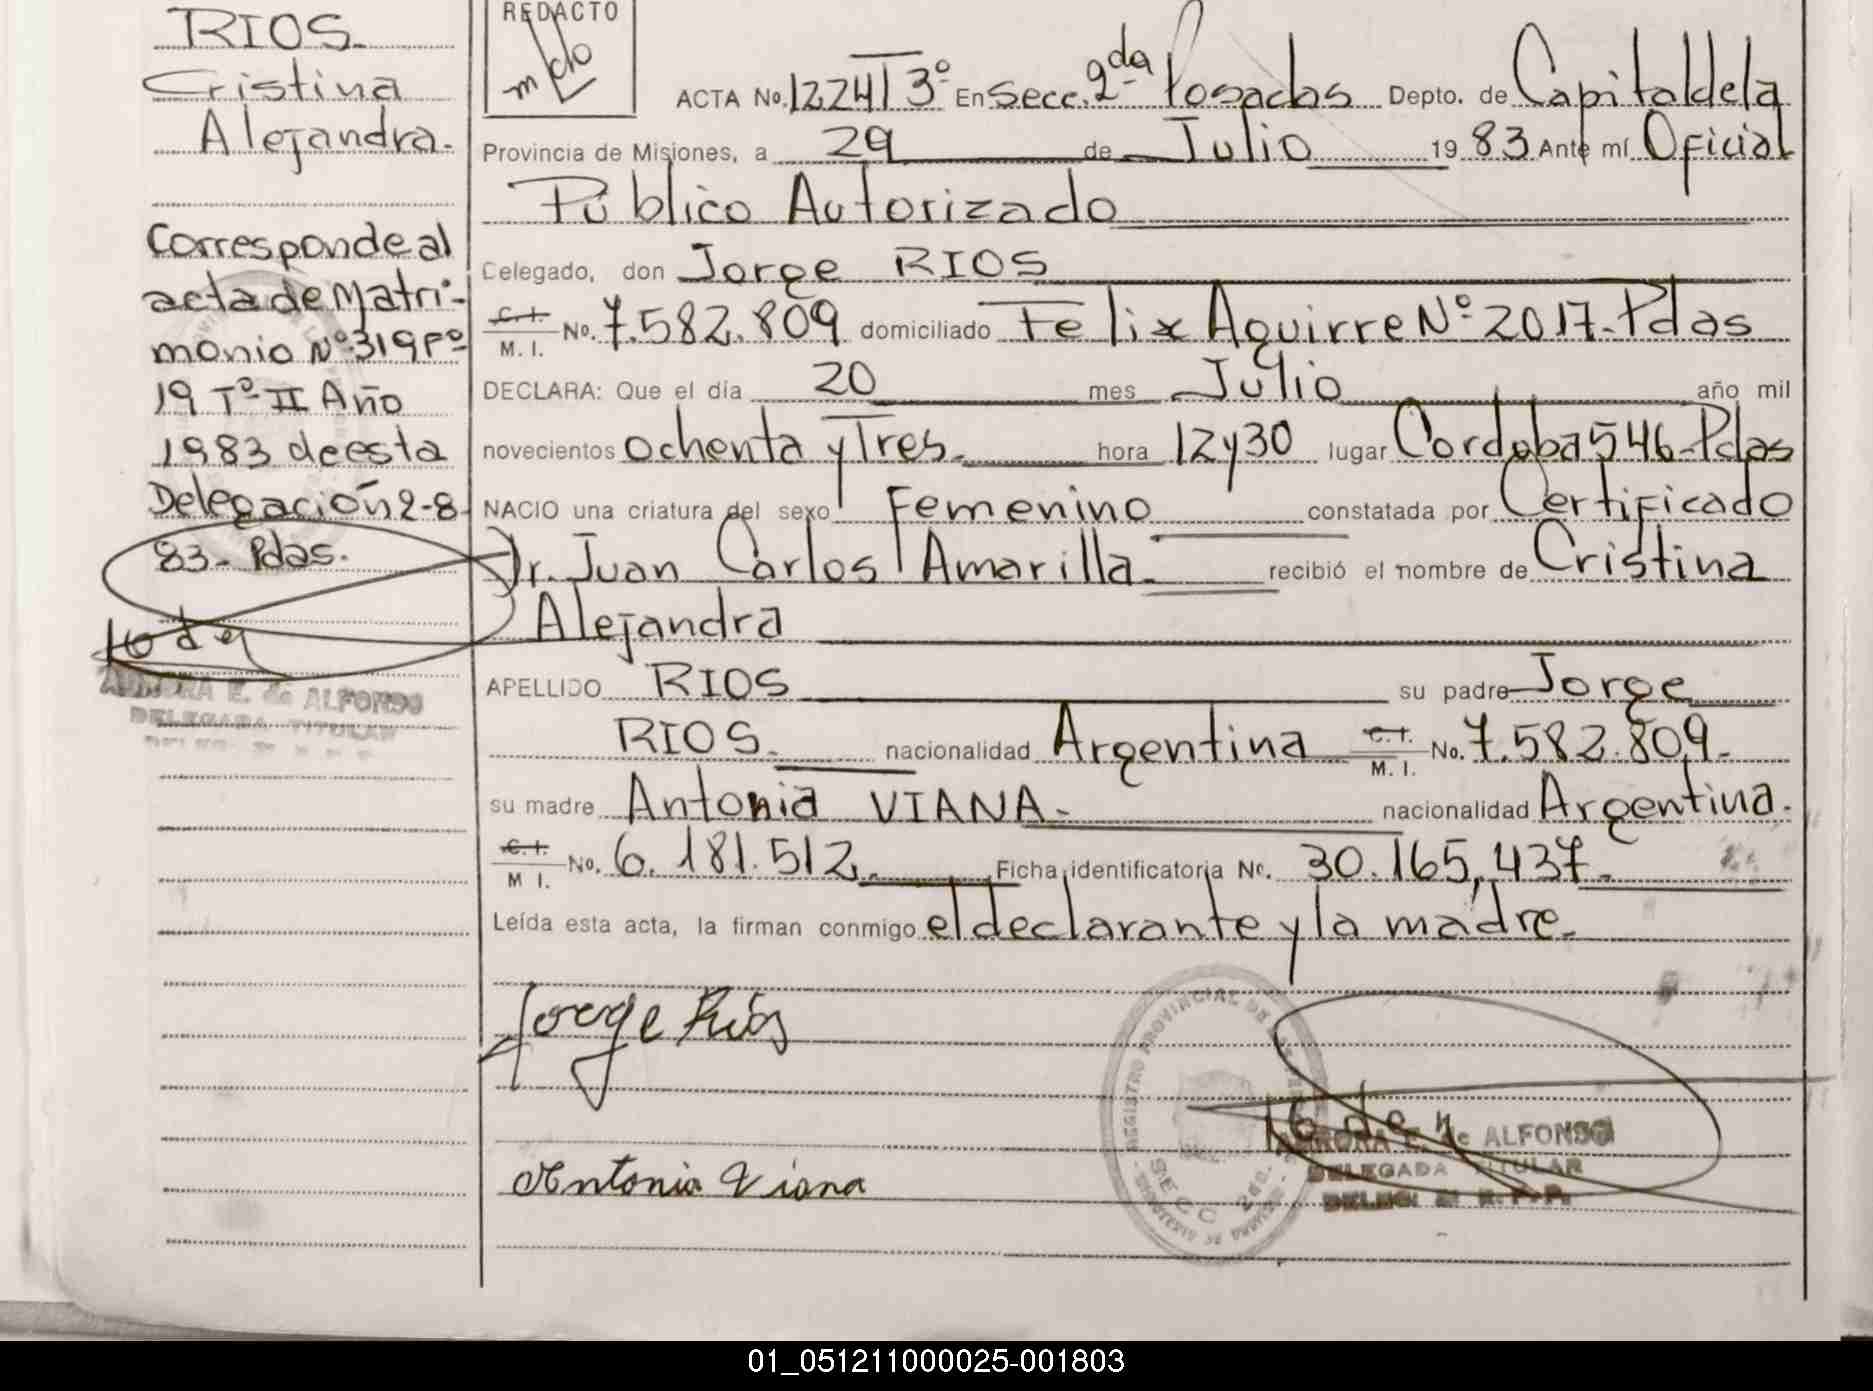 RIOS.
Cristina
Alejandra.
Corresponde al
acta de Matri-
monio Nº 319 Fº
19 Tº II Año
1983 de esta
Delegación 2-8-
83- Pdas.
E. de ALFONSO
DELEGADA TITULAR
REDACTO
ACTA No. 1224 T 3º En Secc. 2da Posadas Depto. de Capital de la
Provincia de Misiones, a 29 de Julio 1983 Ante mí Oficial
Público Autorizado
Celegado, don Jorge RIOS
C.I. M. I. No. 7.582.809 domiciliado Felix Aguirre Nº 2017-Pdas
DECLARA: Que el día 20 mes Julio año mil
novecientos ochenta y Tres. hora 12 y 30 lugar Cordoba 546-Pdas
NACIO una criatura del sexo Femenino constatada por Certificado
Dr. Juan Carlos Amarilla. recibió el nombre de Cristina
Alejandra
APELLIDO RIOS su padre Jorge
RIOS. nacionalidad Argentina C.I. M. I. No. 7.582.809.
su madre Antonia VIANA. nacionalidad Argentina.
C.I. M I. No. 6.181.512. Ficha identificatoria No. 30.165.437.
Leída esta acta, la firman conmigo el declarante y la madre.
Jorge Ríos
REGISTRO PROVINCIAL DE
SECC 2da.
E. de ALFONSO
DELEGADA TITULAR
Antonia Viana
01_051211000025-001803